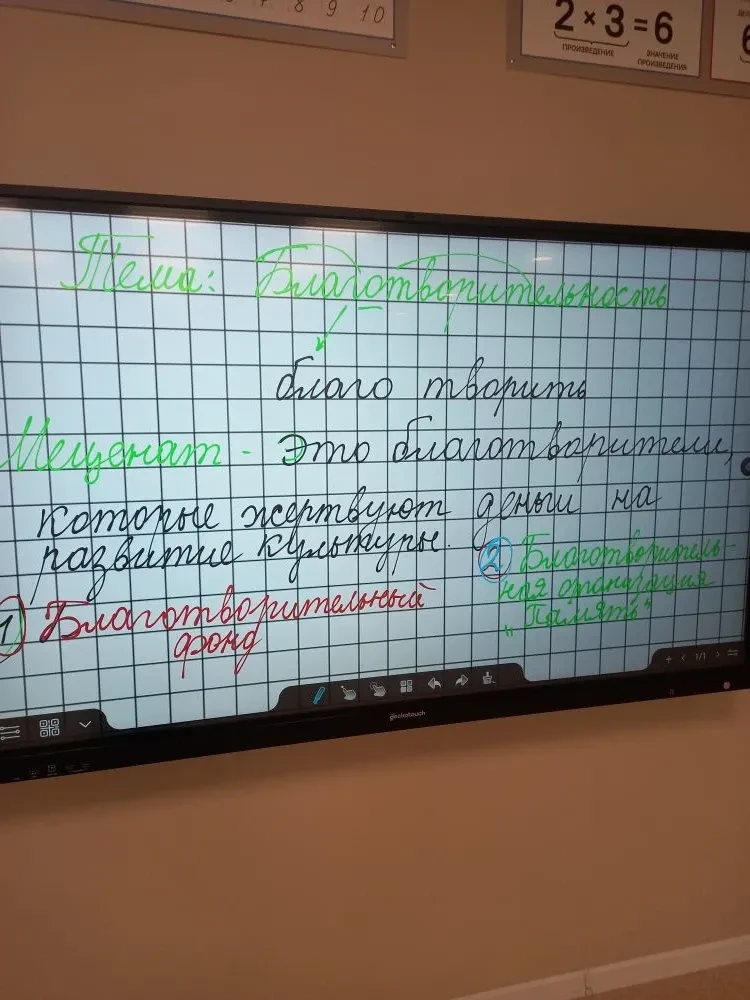 7 8 9 10
2 × 3 = 6
ПРОИЗВЕДЕНИЕ
ЗНАЧЕНИЕ
ПРОИЗВЕДЕНИЯ
6
Тема: Благотворительность
благо творить
Меценат - Это благотворители,
которые жертвуют деньги на
развитие культуры.
1 Благотворительный
фонд
2 Благотворитель-
ная организация
"Память"
1/1
geckotouch